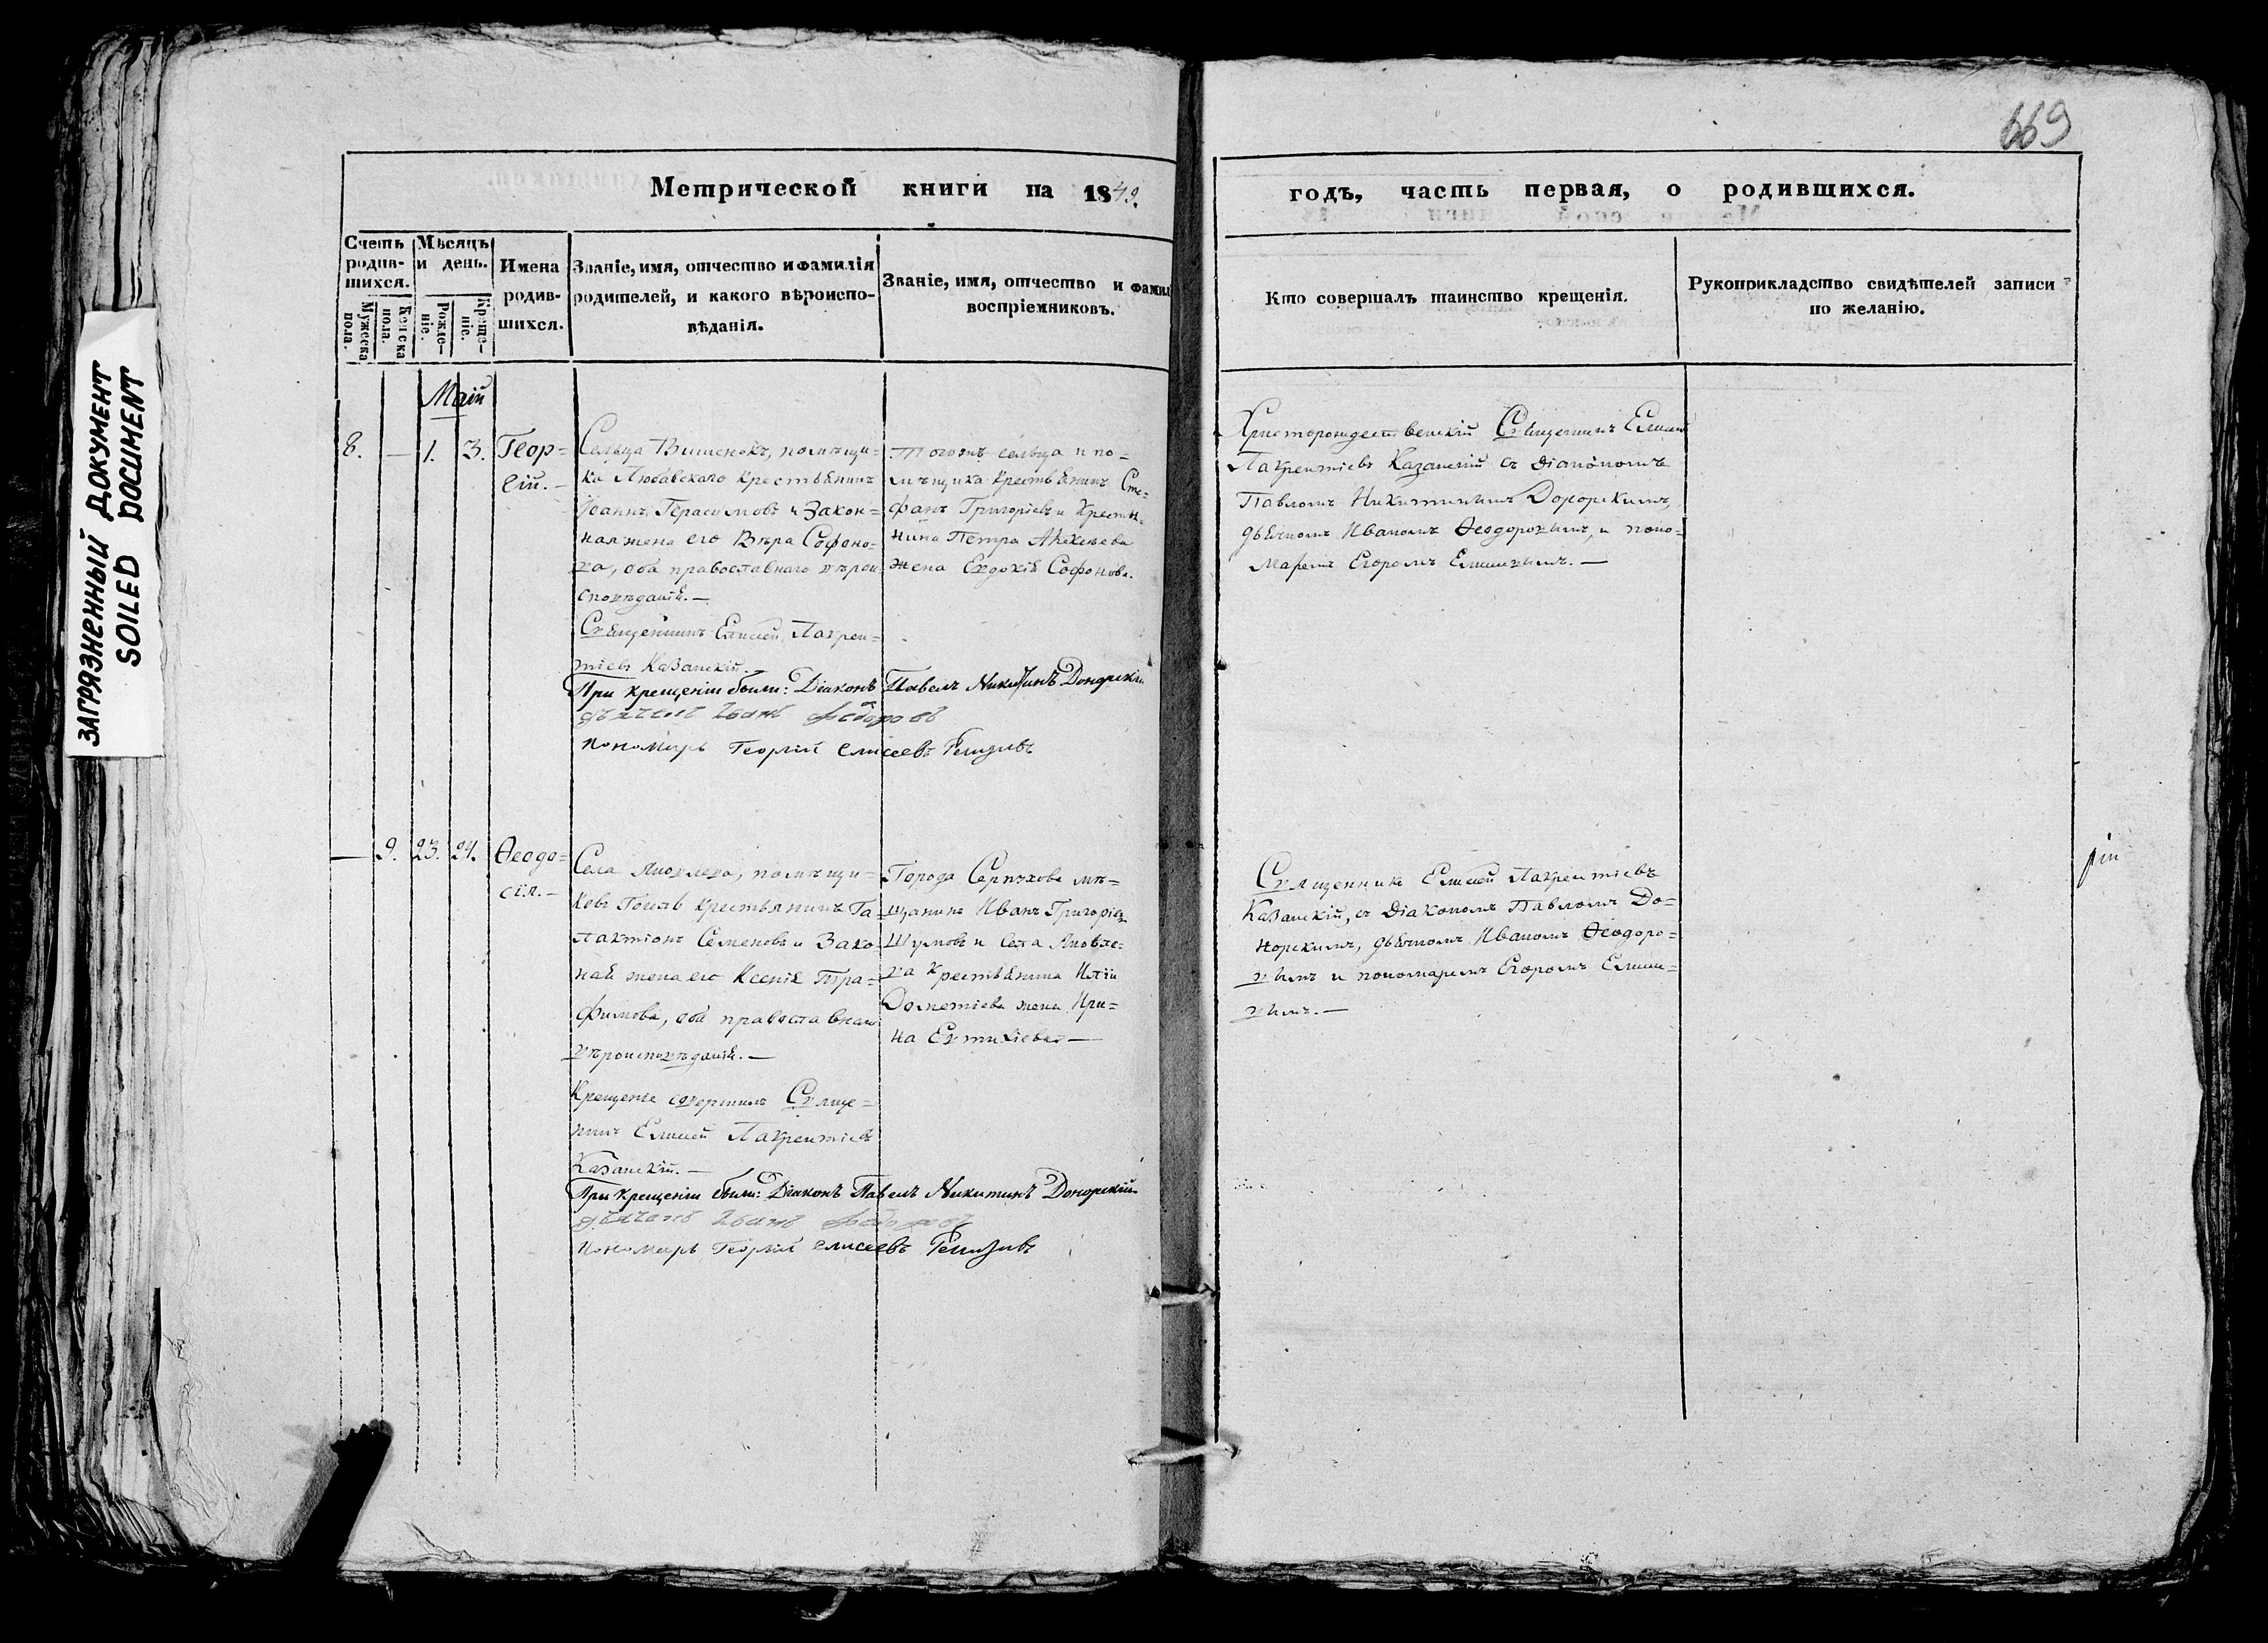 ЗАГРЯЗНЕННЫЙ ДОКУМЕНТ
SOILED DOCUMENT
669
Метрической книги на 1849.
годъ, часть первая, о родившихся.
Счетъ родив-шихся.
Мужеска пола.
Женска пола.
Мѣсяцъ и день.
Рожде-ніе.
Креще-ніе.
Имена родив-шихся.
Званіе, имя, отчество и фамилія
родителей, и какого вѣроиспо-
вѣданія.
Званіе, имя, отчество и фамил
воспріемниковъ.
Кто совершалъ таинство крещенія.
Рукоприкладство свидѣтелей записи
по желанію.
Маій
8. — 1. 3. Геор=
гій. —
Сельца Вишенокъ, помѣщи=
ка Любавскаго крестьянинъ
Іоаннъ Герасимовъ и Закон=
ная жена его Вѣра Софоно=
ва, оба православнаго вѣрои
сповѣданія. —
Священникъ Елисей Лаврен=
тіевъ Казанскій. —
При крещеніи были: Діаконъ Павелъ Никитинъ Донорскій
дьячекъ Иванъ Федоровъ
Пономарь Георгій Елисеевъ
Тогожъ сельца и по=
мѣщика крестьянинъ Сте=
фанъ Григорьевъ и Крестья=
нина Петра
жена Евдокія Софонова.
Христорождественскій Священникъ Елисей
Лаврентіевъ Казанскій съ Діакономъ
Павломъ Никитинымъ Донорскимъ,
дьячкомъ Иваномъ Ѳеодоровымъ, и поно=
маремъ Егоромъ
— 9. 23. 24. Ѳеодо=
сія. —
Села Яковлева, помѣщи=
ковъ крестьянинъ Га=
лактіонъ Семеновъ и Зако=
ная жена его Ксенія Тра=
фимова, оба православнаго
вѣроисповѣданія. —
Крещеніе совершилъ Свяще=
нникъ Елисей Лаврентіевъ
Казанскій. —
При крещеніи были: Діаконъ Павелъ Никитинъ Донорскій
дьячекъ Иванъ Федоровъ
Пономарь Георгій Елисеевъ
Города Серпухова мѣ=
щанинъ Иванъ Григорьевъ
Шумовъ и Села Яковле=
ва крестьянина Иліи
Дометіева жена Ири=
на Евтихіева —
Священникъ Елисей Лаврентіевъ
Казанскій, съ Діакономъ Павломъ До=
норскимъ, дьячкомъ Иваномъ Ѳеодоро=
вымъ и пономаремъ Егоромъ Елисее=
вымъ. —